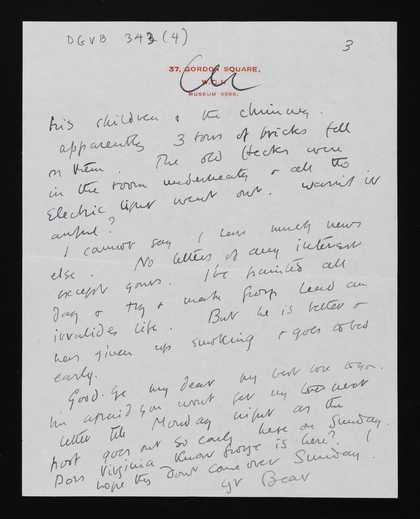 DGVB 343 (4)
3
37, GORDON SQUARE,
W.C.1.
MUSEUM
his children & the chimney.
apparently 3 tons of bricks fell
on them. The old were
in the room underneath & all the
Electric light went out. wasn't it
awful?
I cannot say I have much news
else. No letters of any interest
except yours. I've painted all
day & try & make George lead an
invalides life. But he is better &
has given up smoking & goes to bed
early.
Good-bye my dear my best love to you.
Im afraid you wont get my next
letter till Monday night as the
post goes out so early here on Sunday.
Does Virginia know George is here? I
hope they dont come over Sunday.
yr Bear